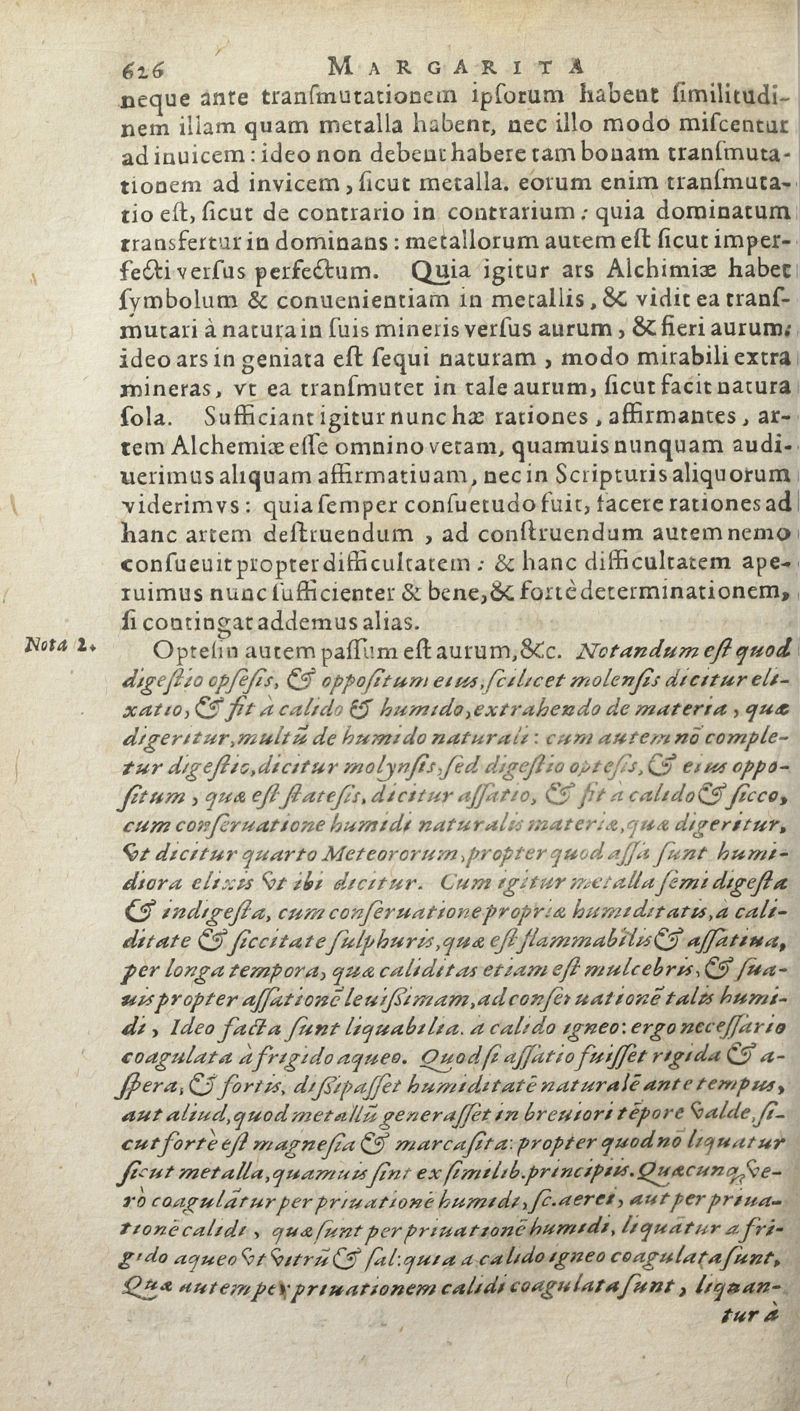 626 MARGARITA
neque ante tranſmutationem ipſorum habent ſimilitudi-
nem illam quam metalla habent, nec illo modo miſcentur
ad inuicem : ideo non debent habere tam bonam tranſmuta-
tionem ad invicem, ſicut metalla. eorum enim tranſmuta-
tio eſt, ſicut de contrario in contrarium : quia dominatum
transfertur in dominans : metallorum autem eſt ſicut imper-
fecti verſus perfectum. Quia igitur ars Alchimiæ habet
ſymbolum & conuenientiam in metallis, & vidit ea tranſ-
mutari à natura in ſuis mineris verſus aurum, & fieri aurum:
ideo ars in geniata eſt ſequi naturam , modo mirabili extra
mineras, vt ea tranſmutet in tale aurum, ſicut facit natura
ſola. Sufficiant igitur nunc hæ rationes , affirmantes, ar-
tem Alchemiæ eſſe omnino veram, quamuis nunquam audi-
uerimus aliquam affirmatiuam, nec in Scripturis aliquorum
viderimvs : quia ſemper conſuetudo fuit, facere rationes ad
hanc artem deſtruendum , ad conſtruendum autem nemo
conſueuit propter difficultatem : & hanc difficultatem ape-
ruimus nunc ſufficienter & bene, & fortè determinationem,
ſi contingat addemus alias.
Nota 2.
Opteſin autem paſſum eſt aurum, &c. Notandum eſt quod
digeſtio opſeſis, & oppoſitum eius, ſcilicet molenſis dicitur eli-
xatio, & fit à calido & humido, extrahendo de materia , quæ
digeritur, multũ de humido naturali : cum autem nō comple-
tur digeſtio, dicitur molynſis, ſed digeſtio opteſis, & eius oppo-
ſitum , quæ eſt ſtateſis, dicitur aſſatio, & fit à calido & ſicco,
cum conſeruatione humidi naturalis materiæ, quæ digeritur,
vt dicitur quarto Meteororum, propter quod aſſa ſunt humi-
diora elixis vt ibi dicitur. Cum igitur metalla ſemi digeſta
& indigeſta, cum conſeruatione propriæ humiditatis, à cali-
ditate & ſiccitate ſulphuris, quæ eſt flammabilis & aſſatiua,
per longa tempora, quæ caliditas etiam eſt mulcebris, & ſua-
uis propter aſſationē leuiſsimam, ad conſeruationē talis humi-
di , Ideo facta ſunt liquabilia. à calido igneo: ergo neceſſario
coagulata à frigido aqueo. Quod ſi aſſatio fuiſſet rigida & a-
ſpera, & fortis, diſsipaſſet humiditatē naturalē ante tempus,
aut aliud, quod metallũ generaſſet in breuiori tēpore valde, ſi-
cut fortè eſt magneſia & marcaſita: propter quod nō liquatur
ſicut metalla, quamuis ſint ex ſimilib. principiis. Quæcunq́, ve-
rò coagulātur per priuationē humidi, ſc. aerei, aut per priua-
tionē calidi , quæ ſunt per priuationē humidi, liquātur à fri-
gido aqueo vt vitrũ & ſal: quia à calido igneo coagulata ſunt,
Quæ autem per priuationem calidi coagulata ſunt, liquan-
tur à